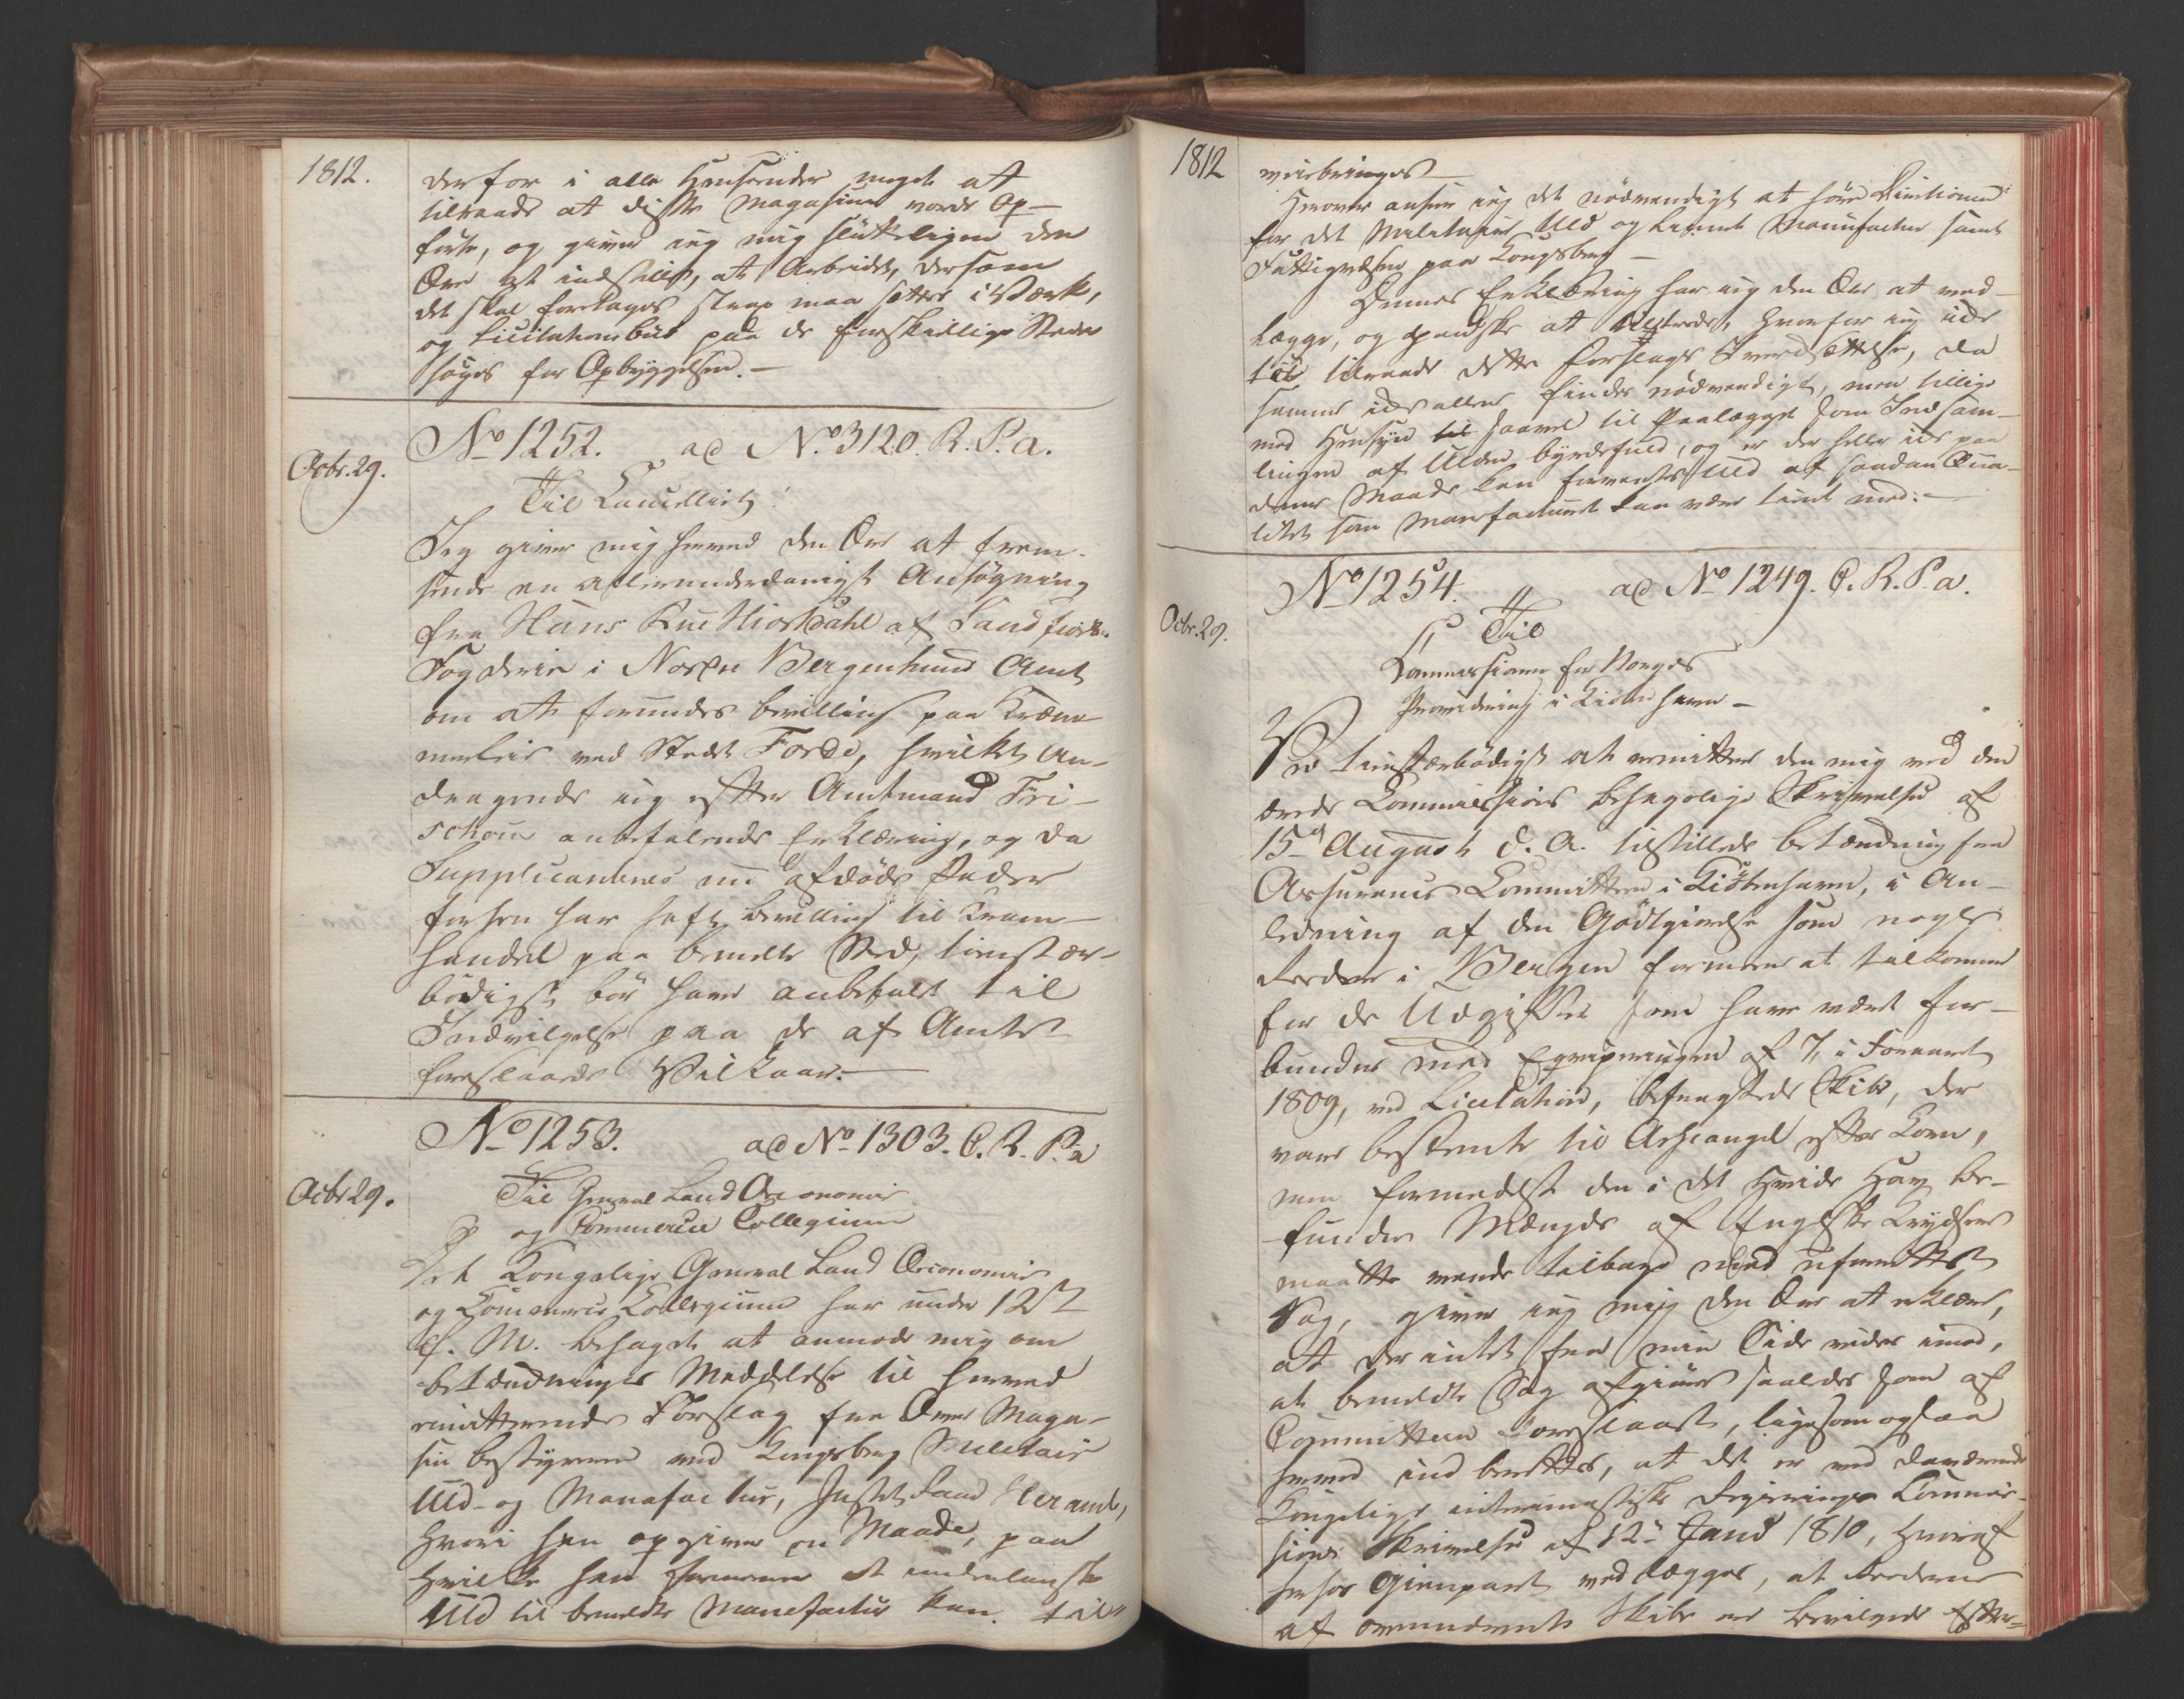 1812.
derfor i alle Henseender meget at
tilraade at disse Magasiner vorde Op-
førte, og giver jeg mig slutteligen den
Ære at indstille, at Arbeidet, dersom
det skal foretages strax maa sættes i Værk,
og Licitationsbud paa de forskiellige Steder
søges for Opbyggelsen. —
No 1252. ad No. 3120. R. P. a.
Octbr. 29.
Til Cancelliet
Jeg giver mig herved den Ære at frem-
sende en allerunderdanigst Ansøgning
fra Hans Hiortdahl af Sundfiords
Fogderie i Nordre Bergenhuus Amt
om at forundes bevilling paa Kræm-
merleie ved Stedet Førde, hvilket An-
dragende jeg efter Amtmand Fri-
schous anbefalende Erklæring, og da
Supplicantens nu afdøde Fader
forhen har haft bevilling til Kram-
handel paa bemelte Sted, tienstær-
bødigst bør have anbefalet til
Indvilgelse paa de af Amtet
foreslaaede Vilkaar. —
No 1253. ad No 1303. C. R. P. a
Octbr 29.
Til General Land Oeconomie
og Commerce Collegium
Det Kongelige General Land Oeconomie
og Commerce Collegium har under 12te
f. M. behaget at anmode mig om
betænknings Meddelelse til herved
remitterende Forslag fra Over Maga-
sin bestyreren ved Kongsberg Militair
Uld- og Manufactur, Justitsraad Heramb,
hvori han opgiver en Maade, paa
hvilke han formener at indenlansk
Uld til bemeldte Manufactur kan til-
1812
veiebringes —
Herover ansaae jeg det nødvendigt at høre Directionen
for det Militaire Uld og Linnet Manufactur samt
Fattigvæsen paa Kongsberg —
Dennes Erklæring har jeg den Ære at ved-
lægge, og ganske at tiltræde, hvorfor jeg ikke
tør tilraade dette Forslags Iværksættelse, da
samme ikke allene findes nødvendigt, men tillige
med Hensyn til saavel til Paalægget som Indsam-
lingen af Ulden byrdefuld, og er der heller ikke paa
denne Maade kan forventes Uld af saadan Qua-
litet som Manufacturet kan være tient med. —
No 1254. ad No 1249. C. R. P. a.
Octbr. 29.
Til
Commissionen for Norges
Proviantering i Kiøbenhavn —
Ved tienstærbødigst at remittere den mig ved den
ærede Commissions behagelige Skrivelse af
15de August d. A. tilstillede betænkning fra
Assurance Committeen i Kiøbenhavn, i An-
ledning af den Godtgiørelse som nogle
Redere i Bergen formene at tilkomme
for de Udgifter som have været for-
bundne med Eqviperingen af 7, i Foraaret
1809, ved Licitation, befragtede Skibe, der
vare bestemte til Archangel efter Korn,
men formedelst den i det Hvide Hav be-
fundne Mængde af Engelske Krydsere
maatte vende tilbage med uforrettet
Sag, giver jeg mig den Ære at erklære,
at der intet fra min Side vides imod,
at bemeldte Sag afgiøres saaledes som af
Committeen foreslaaet, ligesom ogsaa
herved indberettes, at det er ved daværende
Kongelige interimistiske Regierings Commis-
sions Skrivelse af 12te Janr 1810, hvoraf
hosfor Gienpart vedlægges, at Rederne
af ommeldte Skibe ere bevilgede Efter-